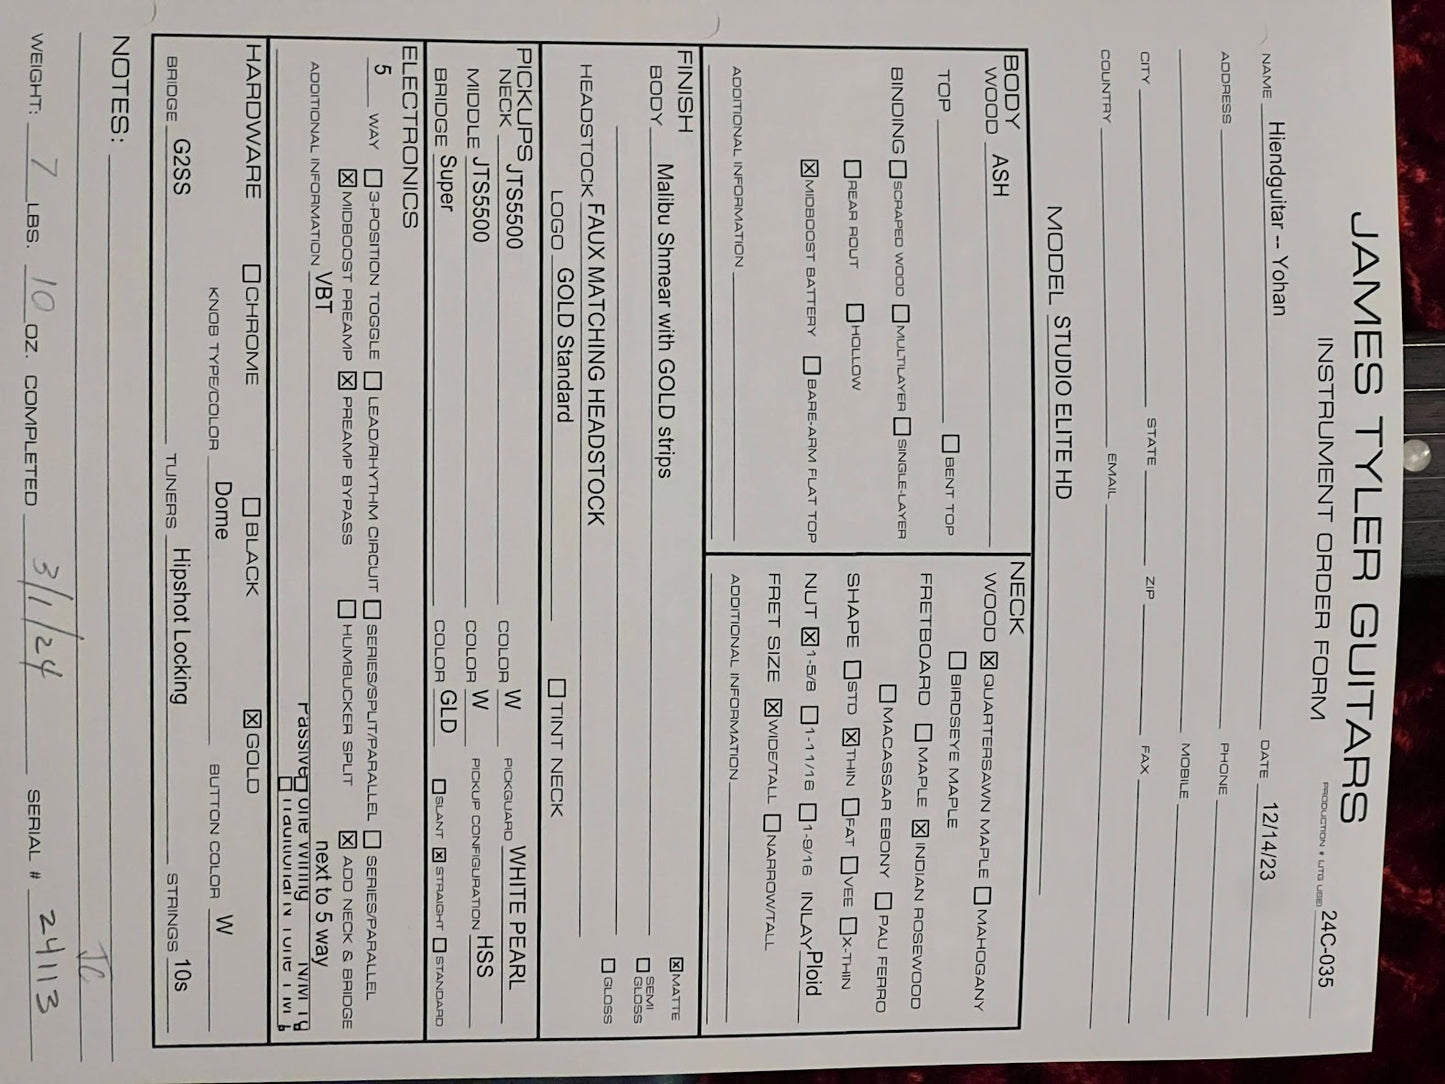 JAMES TYLER GUITARS
INSTRUMENT ORDER FORM
PRODUCTION # (JTG USE) 24C-035
NAME Hiendguitar -- Yohan DATE 12/14/23
ADDRESS PHONE
MOBILE
CITY STATE ZIP FAX
COUNTRY EMAIL
MODEL STUDIO ELITE HD
BODY
WOOD ASH
TOP ☐ BENT TOP
BINDING ☐ SCRAPED WOOD ☐ MULTILAYER ☐ SINGLE-LAYER
☐ REAR ROUT ☐ HOLLOW
☒ MIDBOOST BATTERY ☐ BARE-ARM FLAT TOP
ADDITIONAL INFORMATION
NECK
WOOD ☒ QUARTERSAWN MAPLE ☐ MAHOGANY
☐ BIRDSEYE MAPLE
FRETBOARD ☐ MAPLE ☒ INDIAN ROSEWOOD
☐ MACASSAR EBONY ☐ PAU FERRO
SHAPE ☐ STD ☒ THIN ☐ FAT ☐ VEE ☐ X-THIN
NUT ☒ 1-5/8 ☐ 1-11/16 ☐ 1-9/16 INLAY Ploid
FRET SIZE ☒ WIDE/TALL ☐ NARROW/TALL
ADDITIONAL INFORMATION
FINISH
BODY Malibu Shmear with GOLD strips
☒ MATTE
☐ SEMI GLOSS
☐ GLOSS
HEADSTOCK FAUX MATCHING HEADSTOCK
LOGO GOLD Standard ☐ TINT NECK
PICKUPS
NECK JTS5500 COLOR W PICKGUARD WHITE PEARL
MIDDLE JTS5500 COLOR W PICKUP CONFIGURATION HSS
BRIDGE Super COLOR GLD ☐ SLANT ☒ STRAIGHT ☐ STANDARD
ELECTRONICS
5 WAY ☐ 3-POSITION TOGGLE ☐ LEAD/RHYTHM CIRCUIT ☐ SERIES/SPLIT/PARALLEL ☐ SERIES/PARALLEL
☒ MIDBOOST PREAMP ☒ PREAMP BYPASS ☐ HUMBUCKER SPLIT ☒ ADD NECK & BRIDGE
ADDITIONAL INFORMATION VBT next to 5 way
HARDWARE ☐ CHROME ☐ BLACK ☒ GOLD
KNOB TYPE/COLOR Dome BUTTON COLOR W
BRIDGE G2SS TUNERS Hipshot Locking STRINGS 10s
NOTES:
JC
WEIGHT: 7 LBS. 10 OZ. COMPLETED 3/1/24 SERIAL # 24113